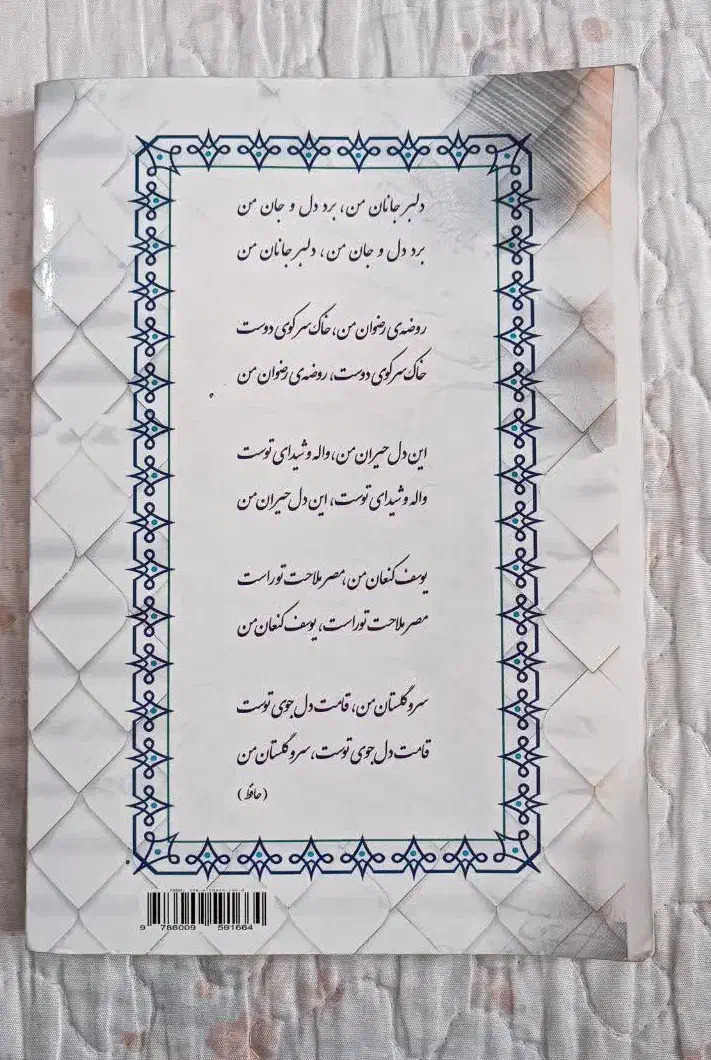 دلبر جانان من، برد دل و جان من
برد دل و جان من، دلبر جانان من
روضه‌ی رضوان من، خاک سر کوی دوست
خاک سر کوی دوست، روضه‌ی رضوان من
این دل حیران من، واله و شیدای توست
واله و شیدای توست، این دل حیران من
یوسف کنعان من، مصر ملاحت توراست
مصر ملاحت توراست، یوسف کنعان من
سرو گلستان من، قامت دل جوی توست
قامت دل جوی توست، سرو گلستان من
(حافظ)
9 786009 591664